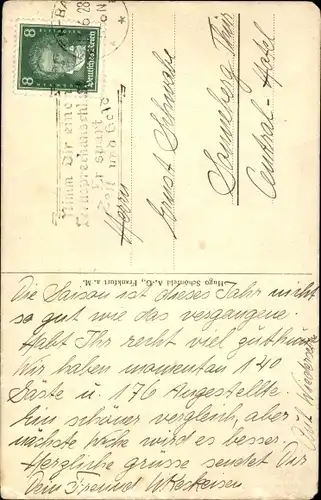 8
Deutsches Reich
8
28
Nimm Dir eine
Fernsprechanschl
Er spart
Zeit und Geld
Herrn
Ernst Schwabe
Sonneberg Thür
Central-Hotel
Hugo Schönfeld A.-G., Frankfurt a. M.
Die Saison ist dieses Jahr nicht
so gut wie das vergangene.
Habt Ihr recht viel zu
Wir haben momentan 140
Gäste u. 176 Angestellte.
Ein schöner vergleich, aber
nächste Woche wird es besser.
Herzliche grüsse sendet Dir
Dein Freund W.
Auf Wiedersehn